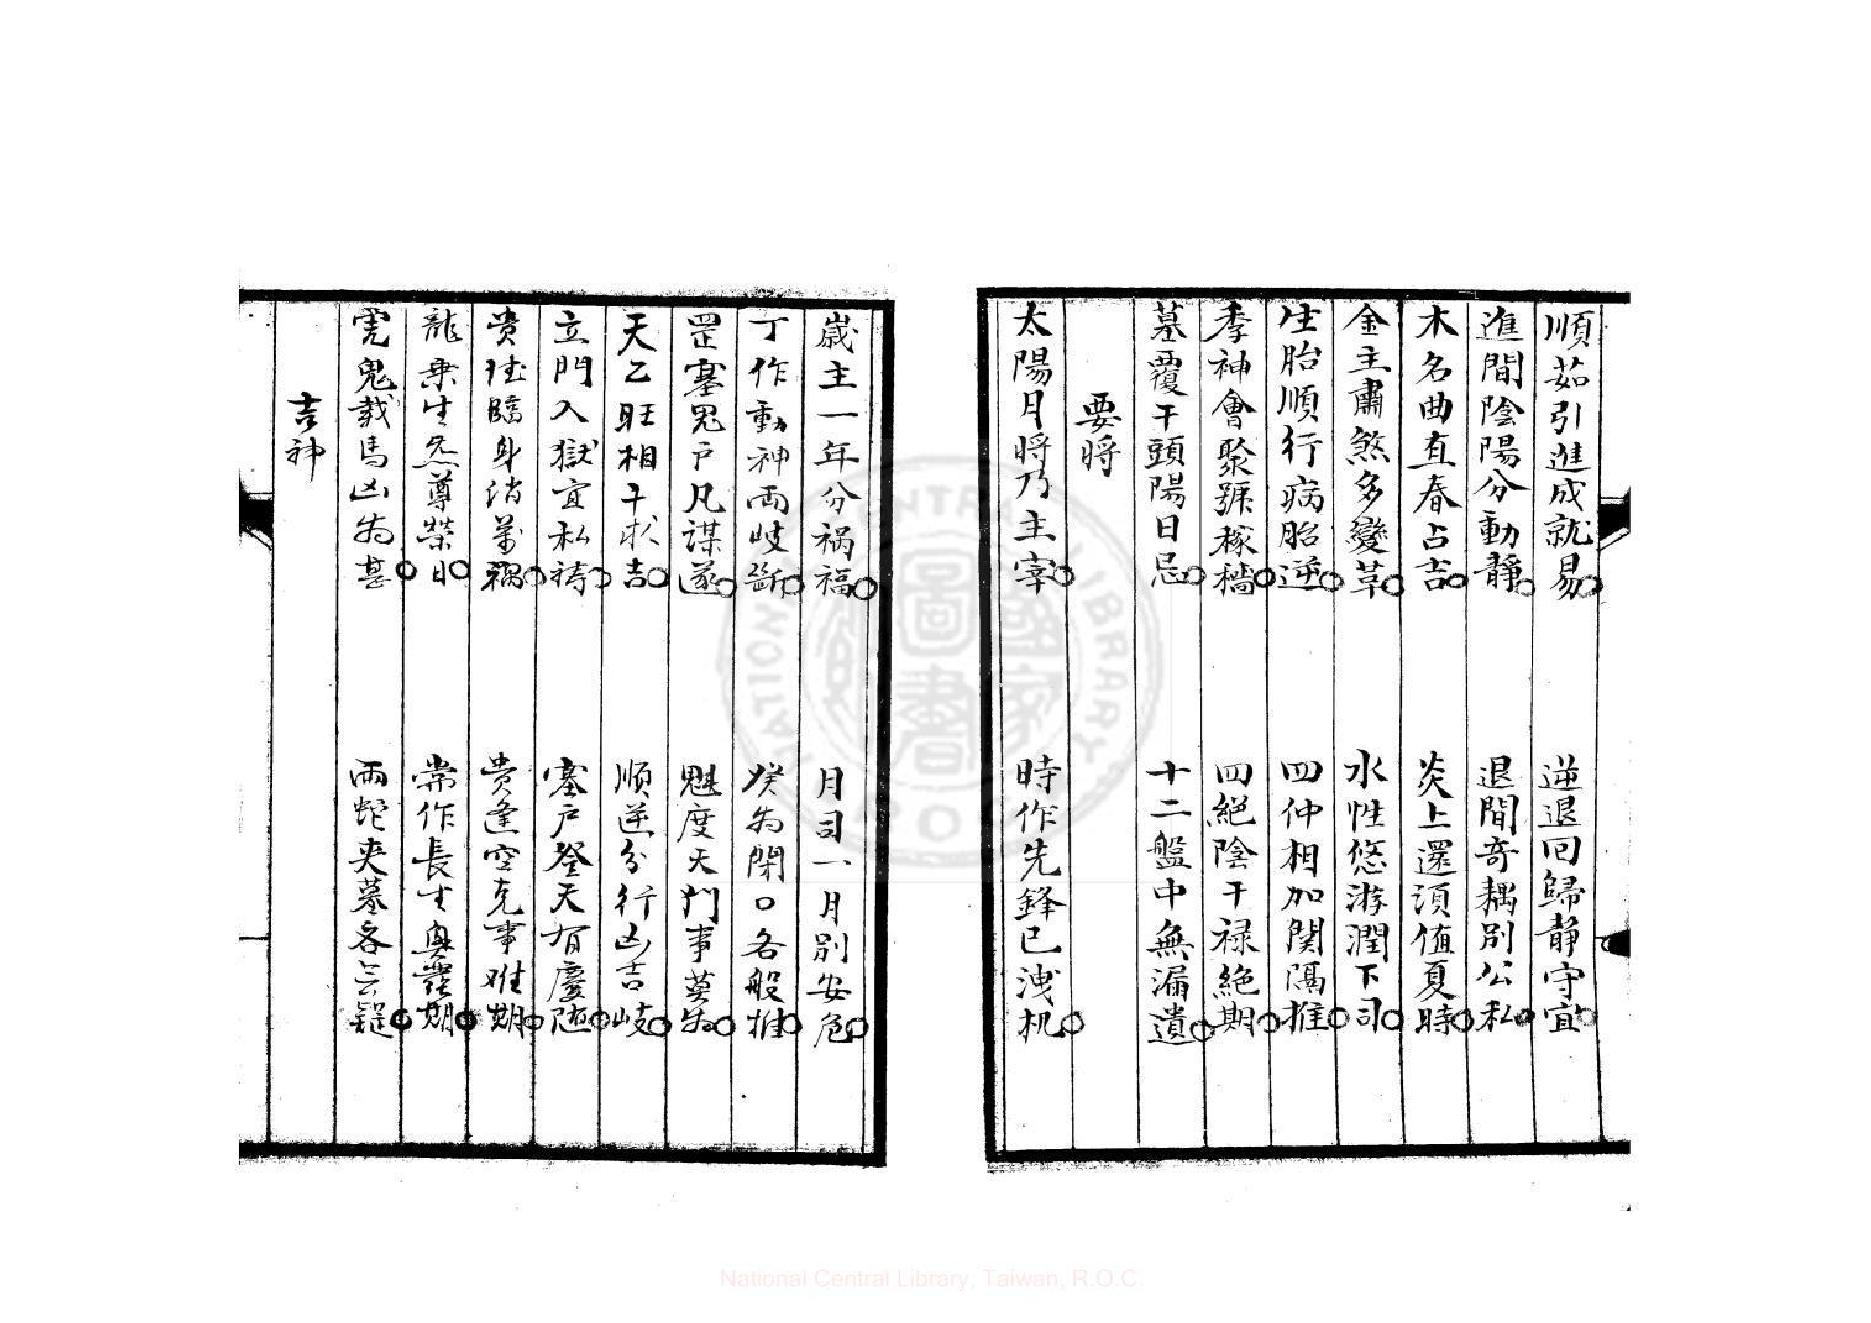 順茹引進成就易○ 逆退回歸靜守宜○
進間陰陽分動靜○ 退間奇耦別公私○
木名曲直春占吉○ 炎上還須值夏時○
金主肅煞多變革○ 水性悠游潤下司○
生胎順行病胎逆○ 四仲相加関隔推○
季神會聚號稼穡○ 四絕陰干祿絕期○
墓覆干頭陽日忌○ 十二盤中無漏遺○
要將
太陽月將乃主宰○ 時作先鋒已洩机○
歲主一年分禍福○ 月司一月別安危○
丁作動神両岐斷○ 癸为閉口各般推○
罡塞鬼户凡謀遂○ 魁度天門事莫为○
天乙旺相干求吉○ 順逆分行凶吉岐○
立門入獄宜私祷○ 塞户登天有慶随○
貴德臨身消萬禍○ 貴逢空克事难期○
龍乗生炁尊榮日○ 常作長生 期○
虎鬼载馬凶为甚○ 両蛇夹墓 无疑○
吉神
National Central Library, Taiwan, R.O.C.